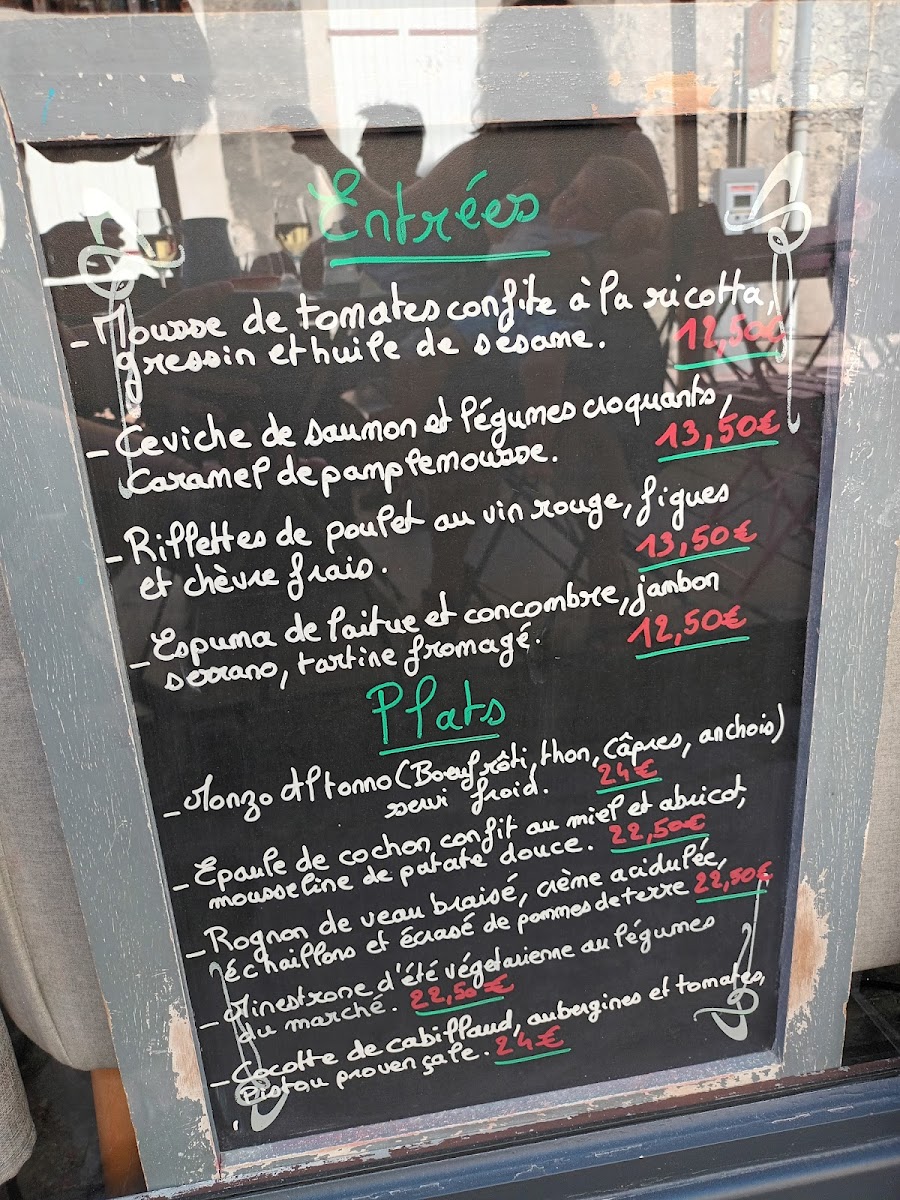 Entrées
- Mousse de tomates confite à la ricotta,
gressin et huile de sésame. 12,50€
- Ceviche de saumon et légumes croquants,
Caramel de pamplemousse. 13,50€
- Rillettes de poulet au vin rouge, figues
et chèvre frais. 13,50€
- Espuma de laitue et concombre, jambon
serrano, tartine fromagé. 12,50€
Plats
- Monzo Al tonno (Boeuf rôti, thon, câpres, anchois)
servi froid. 24€
- Epaule de cochon confit au miel et abricot,
mousseline de patate douce. 22,50€
- Rognon de veau braisé, crème acidulée,
échaillons et écrasé de pommes de terre 22,50€
- Minestrone d'été végétarienne au légumes
du marché. 22,50€
- Cocotte de cabillaud, aubergines et tomates,
Pistou provençale. 24€